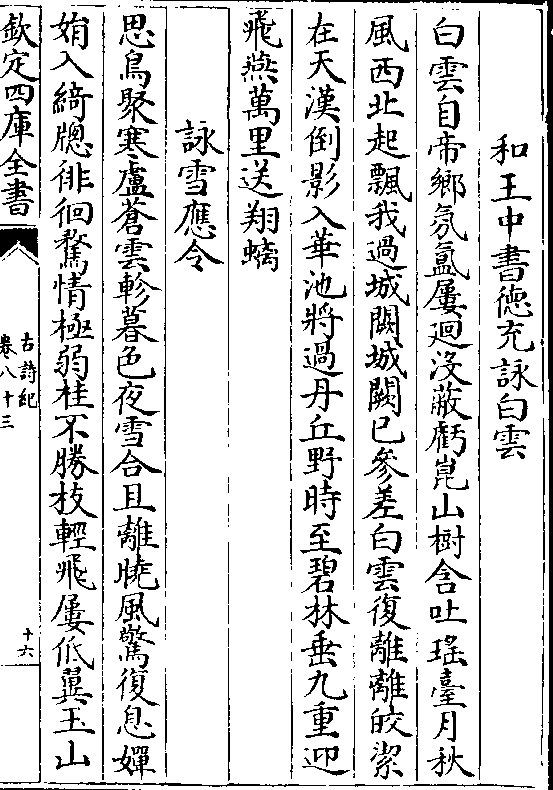 和王中書德充詠白雲
白雲自帝鄉氛氳屢迴沒蔽虧崑山樹含吐瑤臺月秋
風西北起飄我過城闕城闕已參差白雲復離離皎潔
在天漢倒影入華池將過丹丘野時至碧林垂九重迎
飛燕萬里送翔螭
詠雪應令
思鳥聚寒蘆蒼雲軫暮色夜雪合且離曉風驚復息嬋
娟入綺牕徘徊騖情極弱桂不勝枝輕飛屢低翼玉山
欽定四庫全書
古詩紀
卷八十三
十六